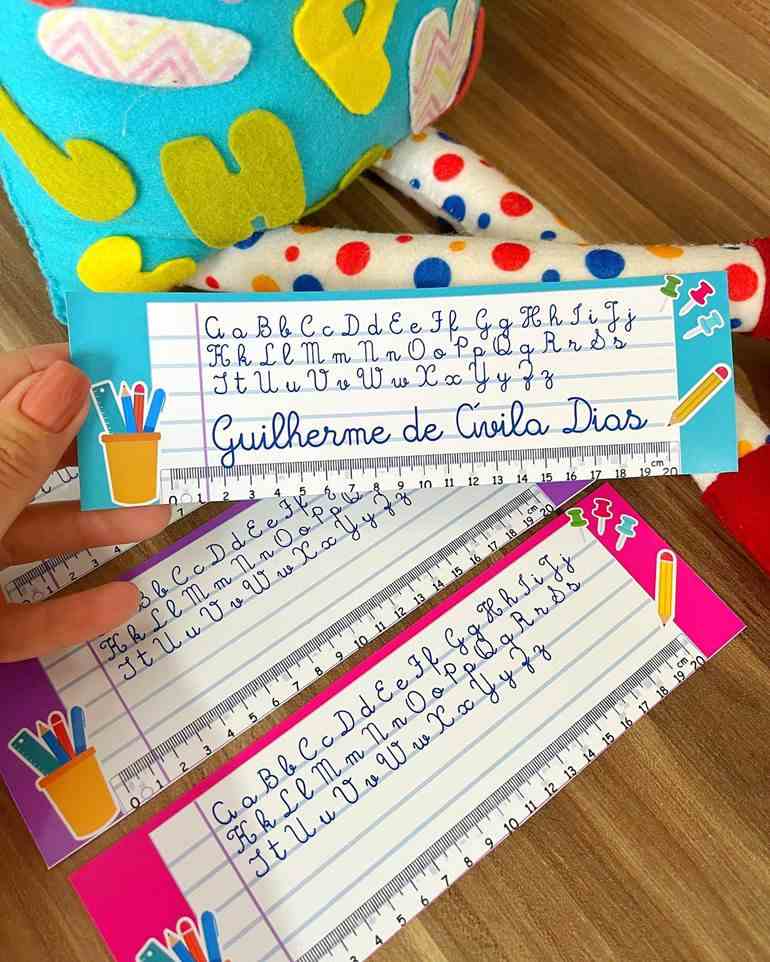 Aa Bb Cc Dd Ee Ff Gg Hh Ii Jj
Kk Ll Mm Nn Oo Pp Qq Rr Ss
Tt Uu Vv Ww Xx Yy Zz
Guilherme de Ávila Dias
0 1 2 3 4 5 6 7 8 9 10 11 12 13 14 15 16 17 18 19 cm 20
Bb Cc Dd Ee Ff
Kk Ll Mm Nn Oo Pp Q
Tt Uu Vv Ww Xx Yy Zz
0 1 2 3 4 5 6 7 8 9 10 11 12 13 14 15 16 17 18 19 cm 20
Aa Bb Cc Dd Ee Ff Gg Hh Ii Jj
Kk Ll Mm Nn Oo Pp Qq Rr Ss
Tt Uu Vv Ww Xx Yy Zz
3 4 5 6 7 8 9 10 11 12 13 14 15 16 17 18 19 cm 20